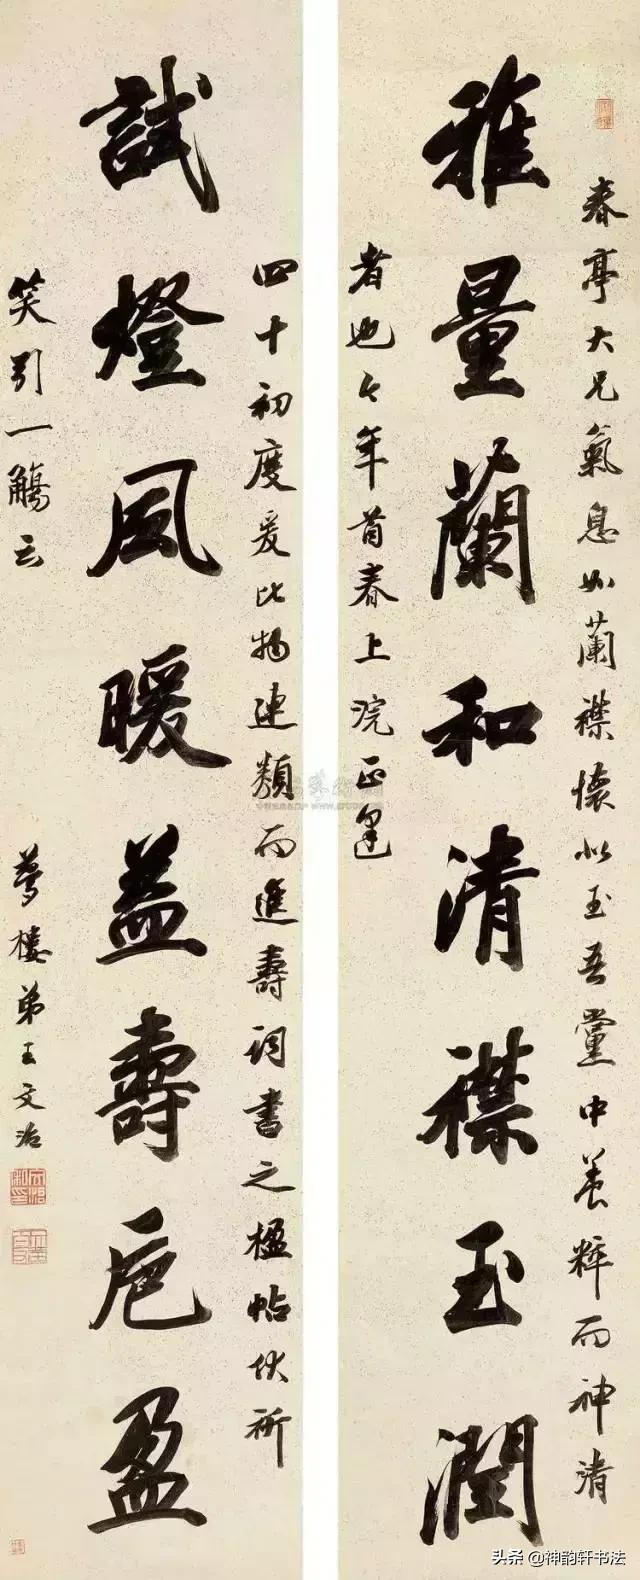 春亭大兄氣息如蘭襟懷似玉吾黨中養粹而神清
雅量蘭和清襟玉潤
者也今年首春上浣正逢
四十初度爰比物連類而進壽詞書之楹帖伏祈
試燈風暖益壽卮盈
笑引一觴云
夢樓弟王文治
头条 @神韵轩书法